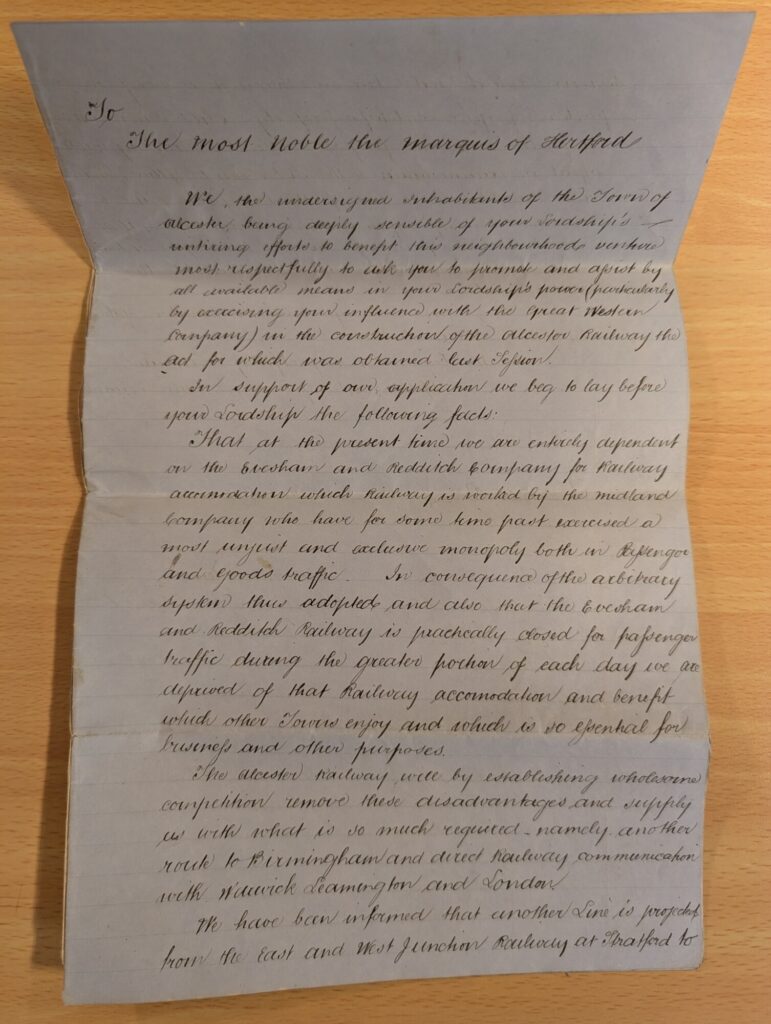 To
The Most Noble the Marquis of Hertford
We, the undersigned Inhabitants of the Town of
Alcester, being deeply sensible of your Lordship's –
untiring efforts to benefit this neighbourhood, venture
most respectfully to ask you to promote and assist by
all available means in your Lordship's power (particularly
by exercising your influence with the Great Western
Company) in the construction of the Alcester Railway the
act for which was obtained last Session.
In support of our application we beg to lay before
your Lordship the following facts:
That at the present time we are entirely dependent
on the Evesham and Redditch Company for Railway
accomodation which Railway is worked by the Midland
Company who have for some time past exercised a
most unjust and exclusive monopoly both in Passenger
and Goods traffic. In consequence of the arbitrary
system thus adopted, and also that the Evesham
and Redditch Railway is practically closed for passenger
traffic during the greater portion of each day we are
deprived of that Railway accomodation and benefit
which other Towns enjoy and which is so essential for
business and other purposes.
The Alcester Railway will by establishing wholesome
competition remove these disadvantages, and supply
us with what is so much required - namely another
route to Birmingham and direct Railway communication
with Warwick Leamington and London
We have been informed that another Line is projected
from the East and West Junction Railway at Stratford to